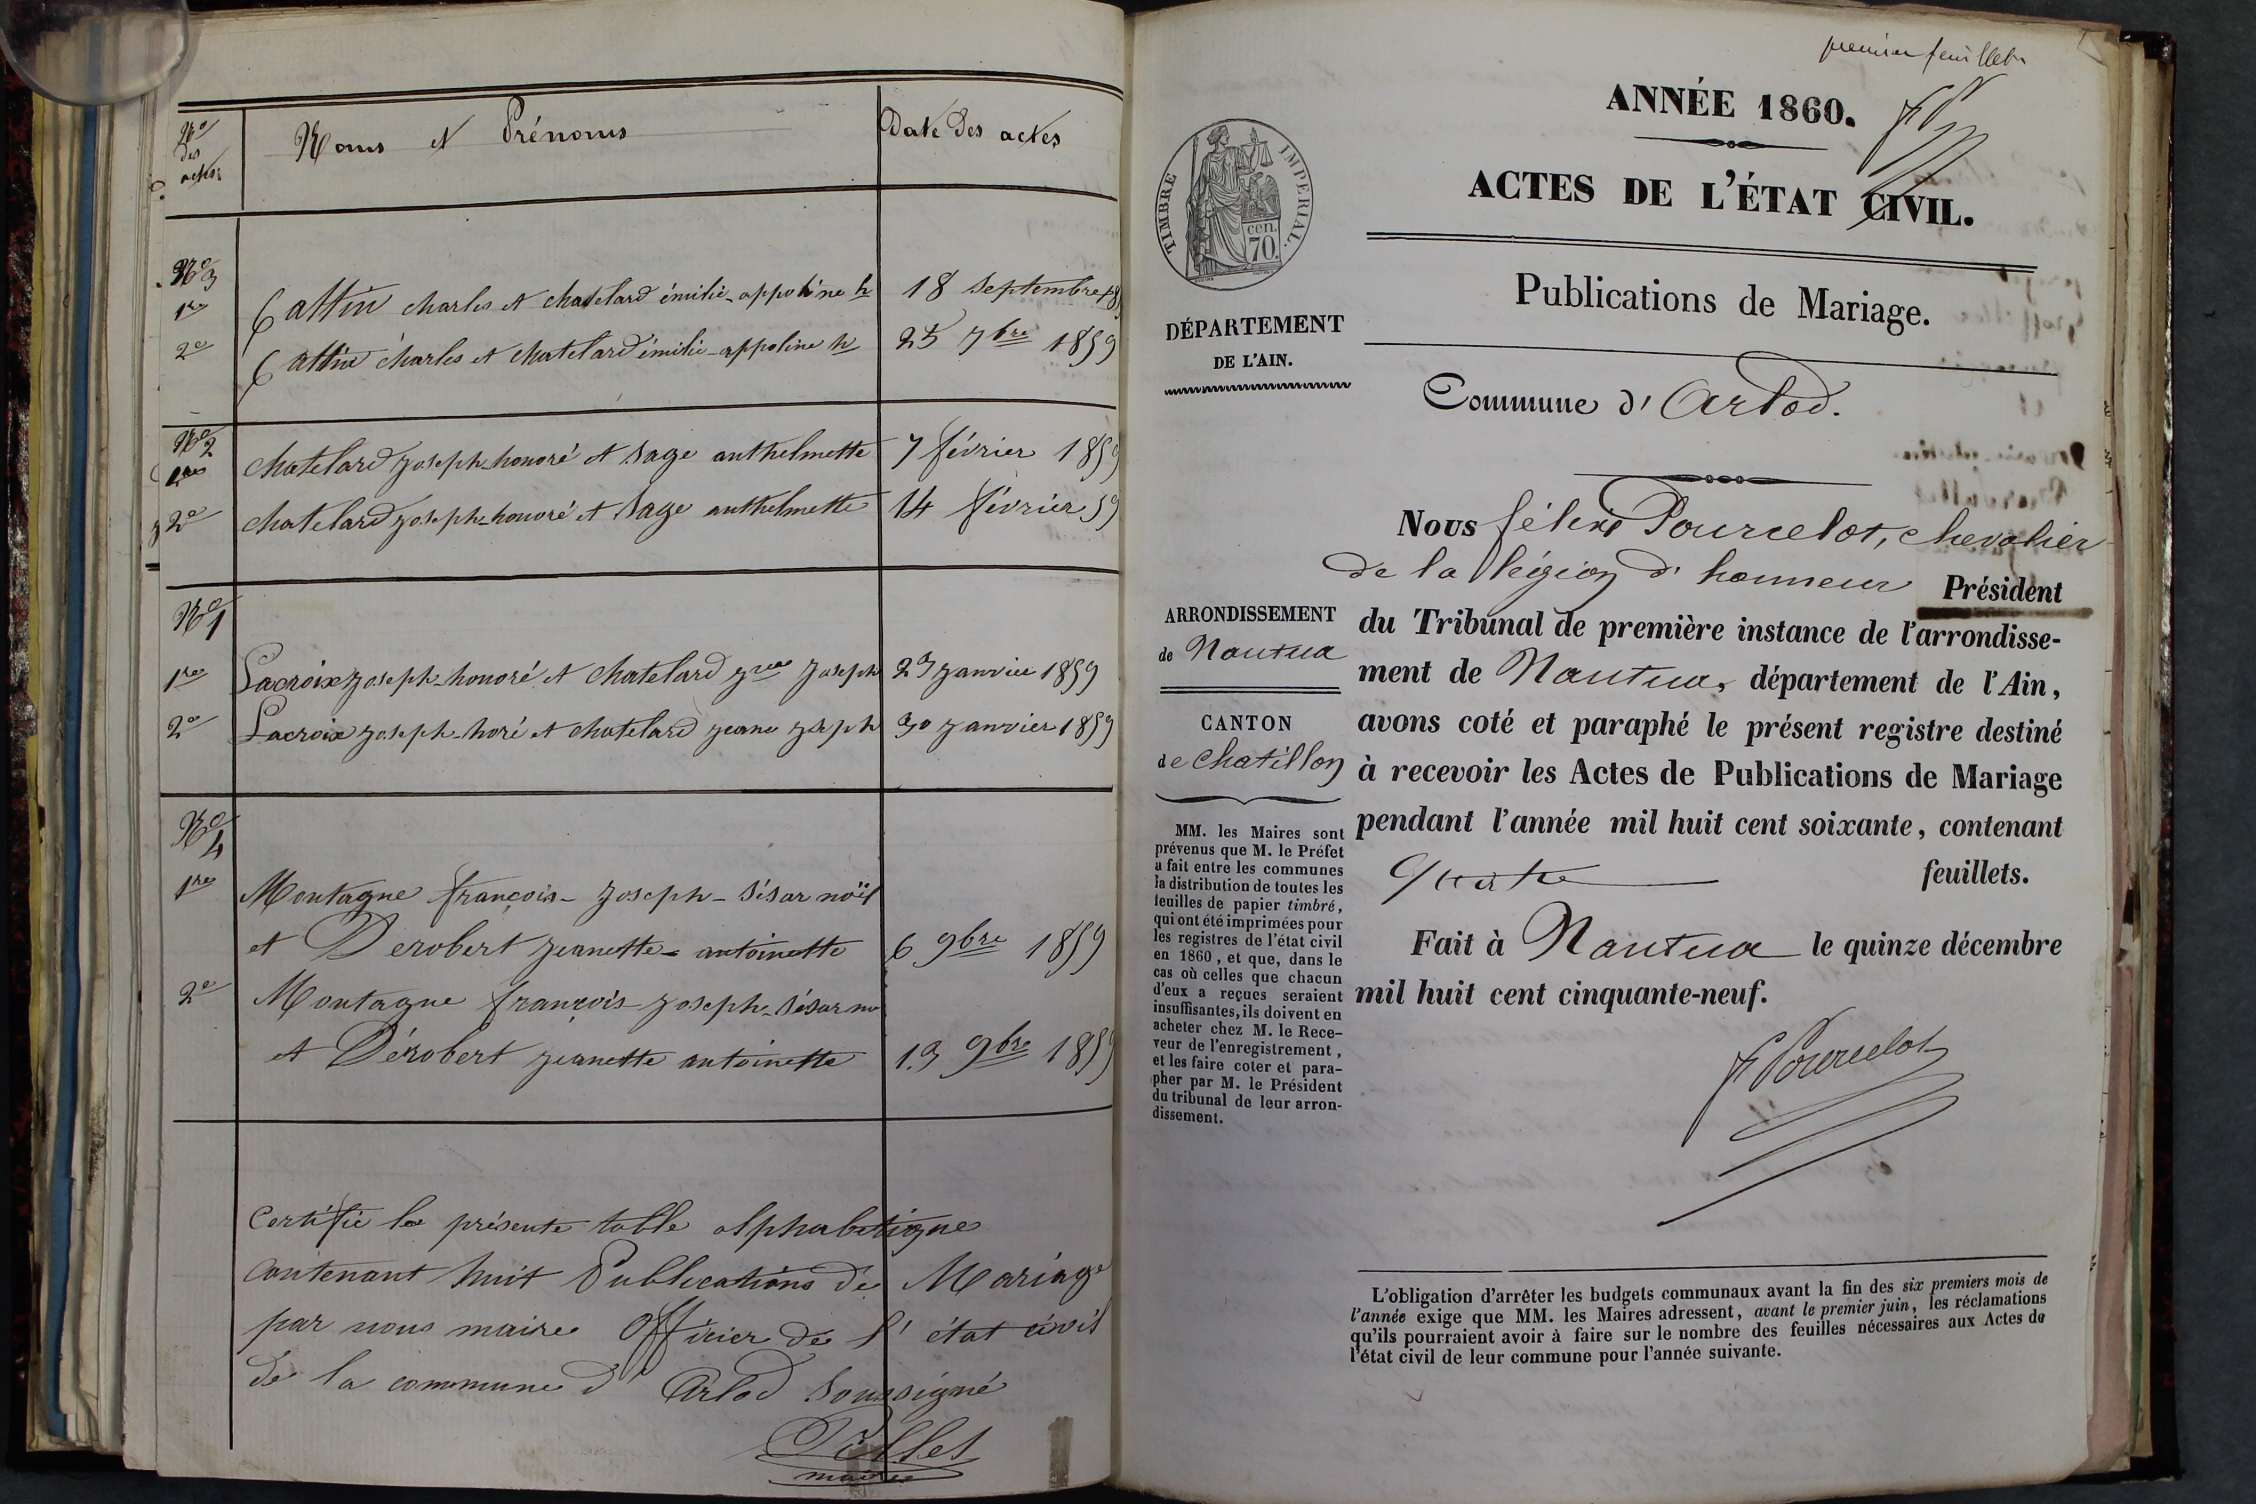 Nos des actes
Noms et Prénoms
Date des actes
No 3
1re Cattin charles et chatelard émilie-appoline h 18 septembre 185
2e Cattin charles et chatelard émilie-appoline h 25 7bre 1859
No 2
1re chatelard joseph-honoré et sage anthelmette 7 février 1859
2e chatelard joseph-honoré et sage anthelmette 14 février 59
No 1
1re Lacroix joseph-honoré et chatelard jne joseph 23 janvier 1859
2e Lacroix joseph-horé et chatelard jeane jseph 30 janvier 1859
No 4
1re Montagne françois-joseph-sésar noël
et Dérobert jeanette-antoinette 6 9bre 1859
2e Montagne françois-joseph-sésar no
et Dérobert jeanette antoinette 13 9bre 1859
Certifié la présente table alphabetique
contenant huit Publications de Mariage
par nous maire officier de l'état civil
de la commune d'Arlod soussigné
maire
premier feuillet
ANNÉE 1860.
ACTES DE L'ÉTAT CIVIL.
TIMBRE IMPERIAL.
cen.
70.
Publications de Mariage.
DÉPARTEMENT
DE L'AIN.
Commune d'Arlod.
Nous félix Pourcelot, chevalier
de la légion d'honneur Président
du Tribunal de première instance de l'arrondisse-
ment de Nantua, département de l'Ain,
avons coté et paraphé le présent registre destiné
à recevoir les Actes de Publications de Mariage
pendant l'année mil huit cent soixante, contenant
quatre feuillets.
Fait à Nantua le quinze décembre
mil huit cent cinquante-neuf.
F Pourcelot
ARRONDISSEMENT
de Nantua
CANTON
de chatillon
MM. les Maires sont
prévenus que M. le Préfet
a fait entre les communes
la distribution de toutes les
feuilles de papier timbré,
qui ont été imprimées pour
les registres de l'état civil
en 1860, et que, dans le
cas où celles que chacun
d'eux a reçues seraient
insuffisantes, ils doivent en
acheter chez M. le Rece-
veur de l'enregistrement,
et les faire coter et para-
pher par M. le Président
du tribunal de leur arron-
dissement.
L'obligation d'arrêter les budgets communaux avant la fin des six premiers mois de
l'année exige que MM. les Maires adressent, avant le premier juin, les réclamations
qu'ils pourraient avoir à faire sur le nombre des feuilles nécessaires aux Actes de
l'état civil de leur commune pour l'année suivante.